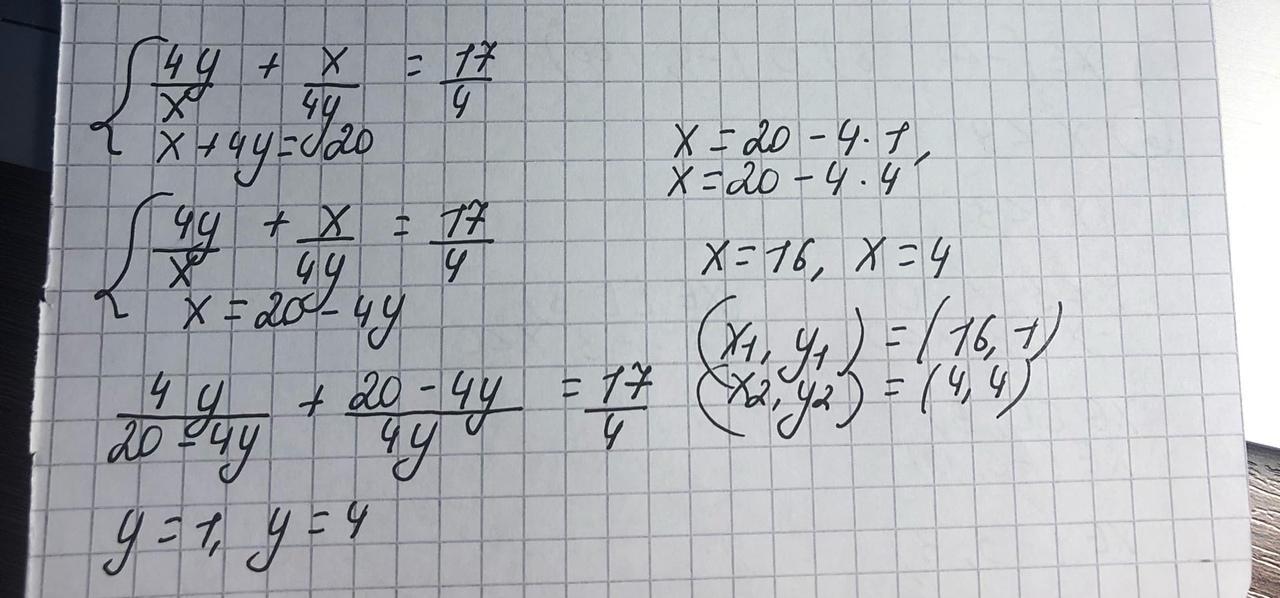 4y/x + x/4y = 17/4
x + 4y = 20
4y/x + x/4y = 17/4
x = 20 - 4y
4y/(20 - 4y) + (20 - 4y)/4y = 17/4
y = 1, y = 4
x = 20 - 4 · 1,
x = 20 - 4 · 4
x = 16, x = 4
(x1, y1) = (16, 1)
(x2, y2) = (4, 4)